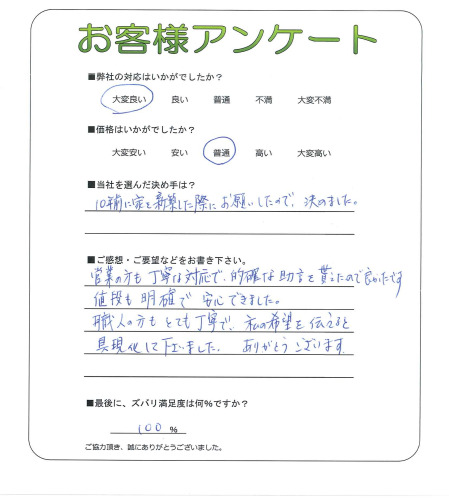 お客様アンケート
■弊社の対応はいかがでしたか？
大変良い 良い 普通 不満 大変不満
■価格はいかがでしたか？
大変安い 安い 普通 高い 大変高い
■当社を選んだ決め手は？
10年前に家を新築した際にお願いしたので、決めました。
■ご感想・ご要望などをお書き下さい。
営業の方も丁寧な対応で、的確な助言を貰えたので良かったです
値段も明確で安心できました。
職人の方もとても丁寧で、私の希望を伝えると
具現化して下さいました。ありがとうございます。
■最後に、ズバリ満足度は何%ですか？
100 %
ご協力頂き、誠にありがとうございました。